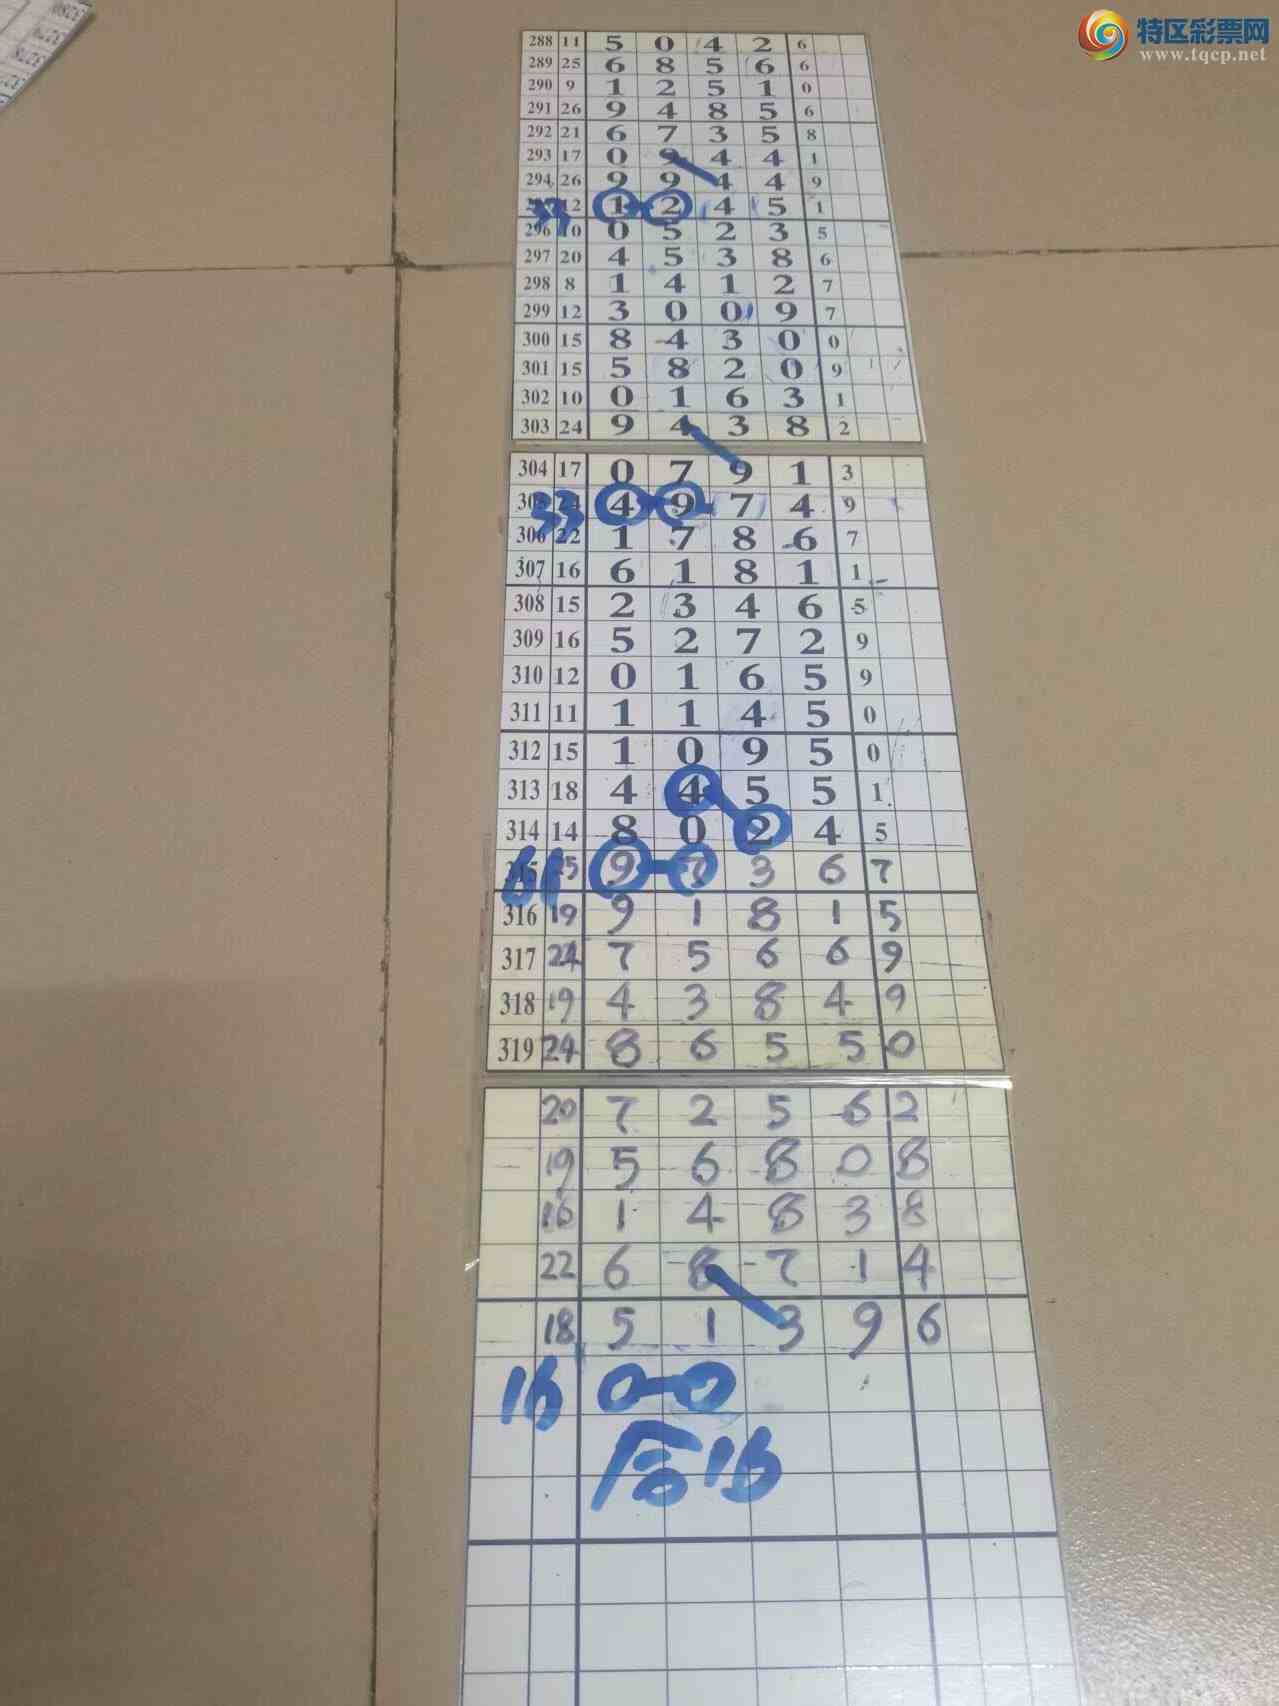 特区彩票网
www.tqcp.net
288 11 5 0 4 2 6
289 25 6 8 5 6 6
290 9 1 2 5 1 0
291 26 9 4 8 5 6
292 21 6 7 3 5 8
293 17 0 9 4 4 1
294 26 9 9 4 4 9
33 12 1 2 4 5 1
296 10 0 5 2 3 5
297 20 4 5 3 8 6
298 8 1 4 1 2 7
299 12 3 0 0 9 7
300 15 8 4 3 0 0
301 15 5 8 2 0 9
302 10 0 1 6 3 1
303 24 9 4 3 8 2
304 17 0 7 9 1 3
305 24 4 9 7 4 9
33
306 22 1 7 8 6 7
307 16 6 1 8 1 1
308 15 2 3 4 6 5
309 16 5 2 7 2 9
310 12 0 1 6 5 9
311 11 1 1 4 5 0
312 15 1 0 9 5 0
313 18 4 4 5 5 1
314 14 8 0 2 4 5
315 25 9 7 3 6 7
61
316 19 9 1 8 1 5
317 24 7 5 6 6 9
318 19 4 3 8 4 9
319 24 8 6 5 5 0
20 7 2 5 6 2
19 5 6 8 0 8
16 1 4 8 3 8
22 6 8 7 1 4
18 5 1 3 9 6
16 0-0
合16